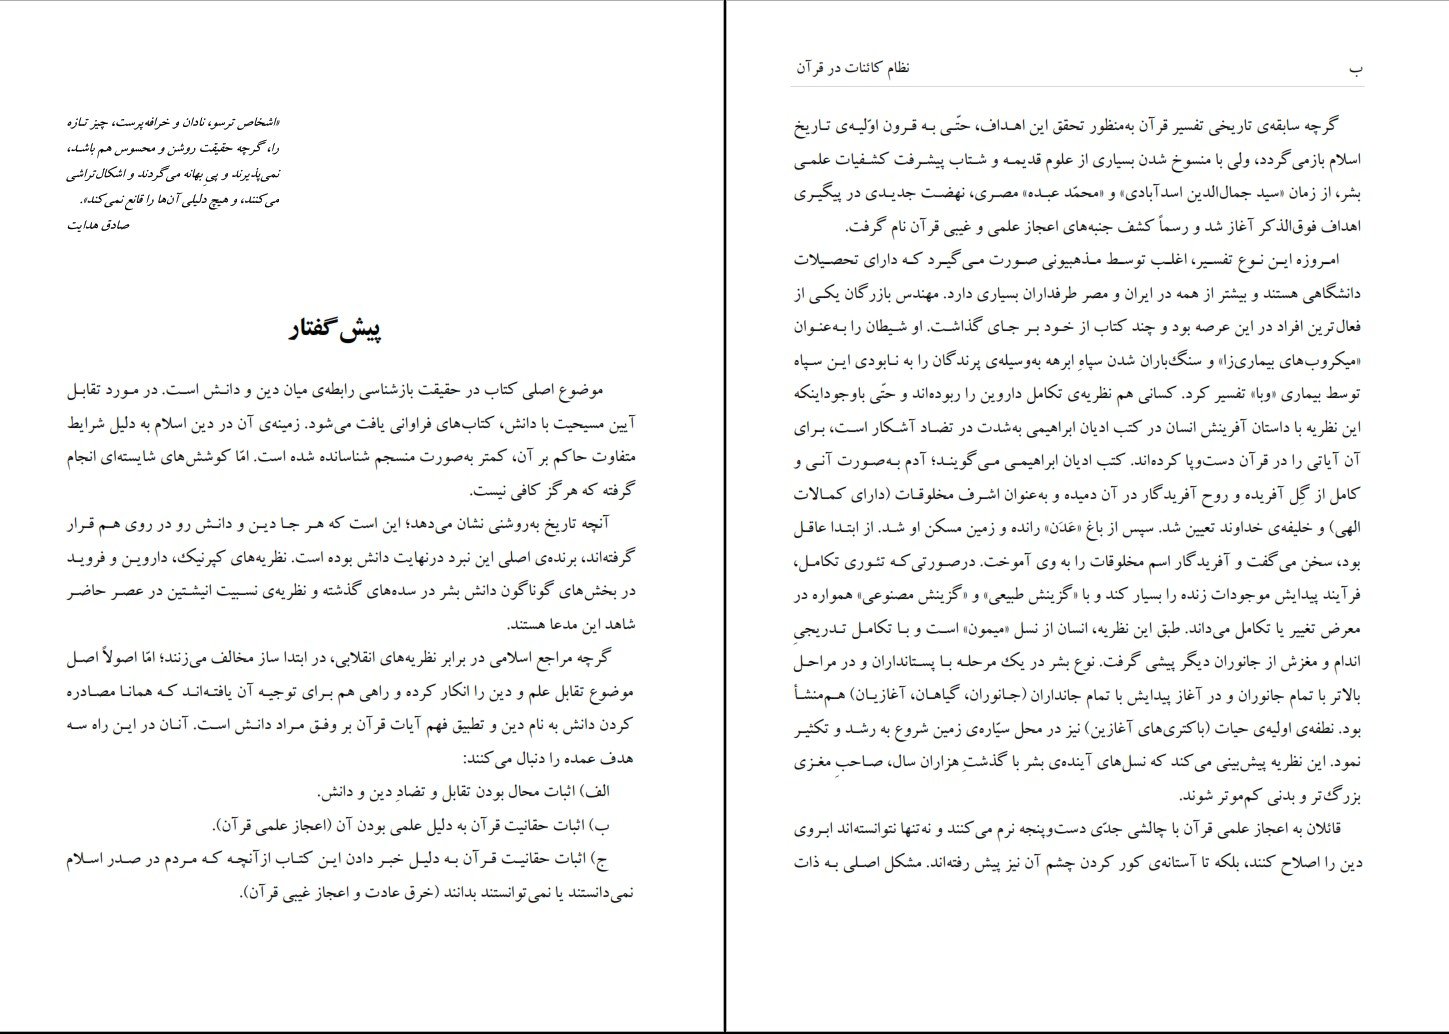 «اشخاص ترسو، نادان و خرافه‌پرست، چیز تازه
را، گرچه حقیقت روشن و محسوس هم باشد،
نمی‌پذیرند و پیِ بهانه می‌گردند و اشکال‌تراشی
می‌کنند، و هیچ دلیلی آن‌ها را قانع نمی‌کند».
صادق هدایت
پیش‌گفتار
موضوع اصلی کتاب در حقیقت بازشناسی رابطه‌ی میان دین و دانش است. در مورد تقابل
آیین مسیحیت با دانش، کتاب‌های فراوانی یافت می‌شود. زمینه‌ی آن در دین اسلام به دلیل شرایط
متفاوت حاکم بر آن، کمتر به‌صورت منسجم شناسانده شده است. امّا کوشش‌های شایسته‌ای انجام
گرفته که هرگز کافی نیست.
آنچه تاریخ به‌روشنی نشان می‌دهد؛ این است که هر جا دین و دانش رو در روی هم قرار
گرفته‌اند، برنده‌ی اصلی این نبرد درنهایت دانش بوده است. نظریه‌های کپرنیک، داروین و فروید
در بخش‌های گوناگون دانش بشر در سده‌های گذشته و نظریه‌ی نسبیت انیشتین در عصر حاضر
شاهد این مدعا هستند.
گرچه مراجع اسلامی در برابر نظریه‌های انقلابی، در ابتدا ساز مخالف می‌زنند؛ امّا اصولاً اصل
موضوع تقابل علم و دین را انکار کرده و راهی هم برای توجیه آن یافته‌اند که همانا مصادره
کردن دانش به نام دین و تطبیق فهم آیات قرآن بر وفق مراد دانش است. آنان در این راه سه
هدف عمده را دنبال می‌کنند:
الف) اثبات محال بودن تقابل و تضادِ دین و دانش.
ب) اثبات حقانیت قرآن به دلیل علمی بودن آن (اعجاز علمی قرآن).
ج) اثبات حقانیت قرآن به دلیل خبر دادن این کتاب ازآنچه که مردم در صدر اسلام
نمی‌دانستند یا نمی‌توانستند بدانند (خرق عادت و اعجاز غیبی قرآن).
ب
نظام کائنات در قرآن
گرچه سابقه‌ی تاریخی تفسیر قرآن به‌منظور تحقق این اهداف، حتّی به قرون اوّلیه‌ی تاریخ
اسلام بازمی‌گردد، ولی با منسوخ شدن بسیاری از علوم قدیمه و شتاب پیشرفت کشفیات علمی
بشر، از زمان «سید جمال‌الدین اسدآبادی» و «محمّد عبده» مصری، نهضت جدیدی در پیگیری
اهداف فوق‌الذکر آغاز شد و رسماً کشف جنبه‌های اعجاز علمی و غیبی قرآن نام گرفت.
امروزه این نوع تفسیر، اغلب توسط مذهبیونی صورت می‌گیرد که دارای تحصیلات
دانشگاهی هستند و بیشتر از همه در ایران و مصر طرفداران بسیاری دارد. مهندس بازرگان یکی از
فعال‌ترین افراد در این عرصه بود و چند کتاب از خود بر جای گذاشت. او شیطان را به‌عنوان
«میکروب‌های بیماری‌زا» و سنگ‌باران شدن سپاهِ ابرهه به‌وسیله‌ی پرندگان را به نابودی این سپاه
توسط بیماری «وبا» تفسیر کرد. کسانی هم نظریه‌ی تکامل داروین را ربوده‌اند و حتّی باوجوداینکه
این نظریه با داستان آفرینش انسان در کتب ادیان ابراهیمی به‌شدت در تضاد آشکار است، برای
آن آیاتی را در قرآن دست‌وپا کرده‌اند. کتب ادیان ابراهیمی می‌گویند؛ آدم به‌صورت آنی و
کامل از گِل آفریده و روح آفریدگار در آن دمیده و به‌عنوان اشرف مخلوقات (دارای کمالات
الهی) و خلیفه‌ی خداوند تعیین شد. سپس از باغ «عَدَن» رانده و زمین مسکن او شد. از ابتدا عاقل
بود، سخن می‌گفت و آفریدگار اسم مخلوقات را به وی آموخت. درصورتی‌که تئوری تکامل،
فرآیند پیدایش موجودات زنده را بسیار کند و با «گزینش طبیعی» و «گزینش مصنوعی» همواره در
معرض تغییر یا تکامل می‌داند. طبق این نظریه، انسان از نسل «میمون» است و با تکامل تدریجیِ
اندام و مغزش از جانوران دیگر پیشی گرفت. نوع بشر در یک مرحله با پستانداران و در مراحل
بالاتر با تمام جانوران و در آغاز پیدایش با تمام جانداران (جانوران، گیاهان، آغازیان) هم‌منشأ
بود. نطفه‌ی اولیه‌ی حیات (باکتری‌های آغازین) نیز در محل سیّاره‌ی زمین شروع به رشد و تکثیر
نمود. این نظریه پیش‌بینی می‌کند که نسل‌های آینده‌ی بشر با گذشتِ هزاران سال، صاحبِ مغزی
بزرگ‌تر و بدنی کم‌موتر شوند.
قائلان به اعجاز علمی قرآن با چالشی جدّی دست‌وپنجه نرم می‌کنند و نه‌تنها نتوانسته‌اند ابروی
دین را اصلاح کنند، بلکه تا آستانه‌ی کور کردن چشم آن نیز پیش رفته‌اند. مشکل اصلی به ذات